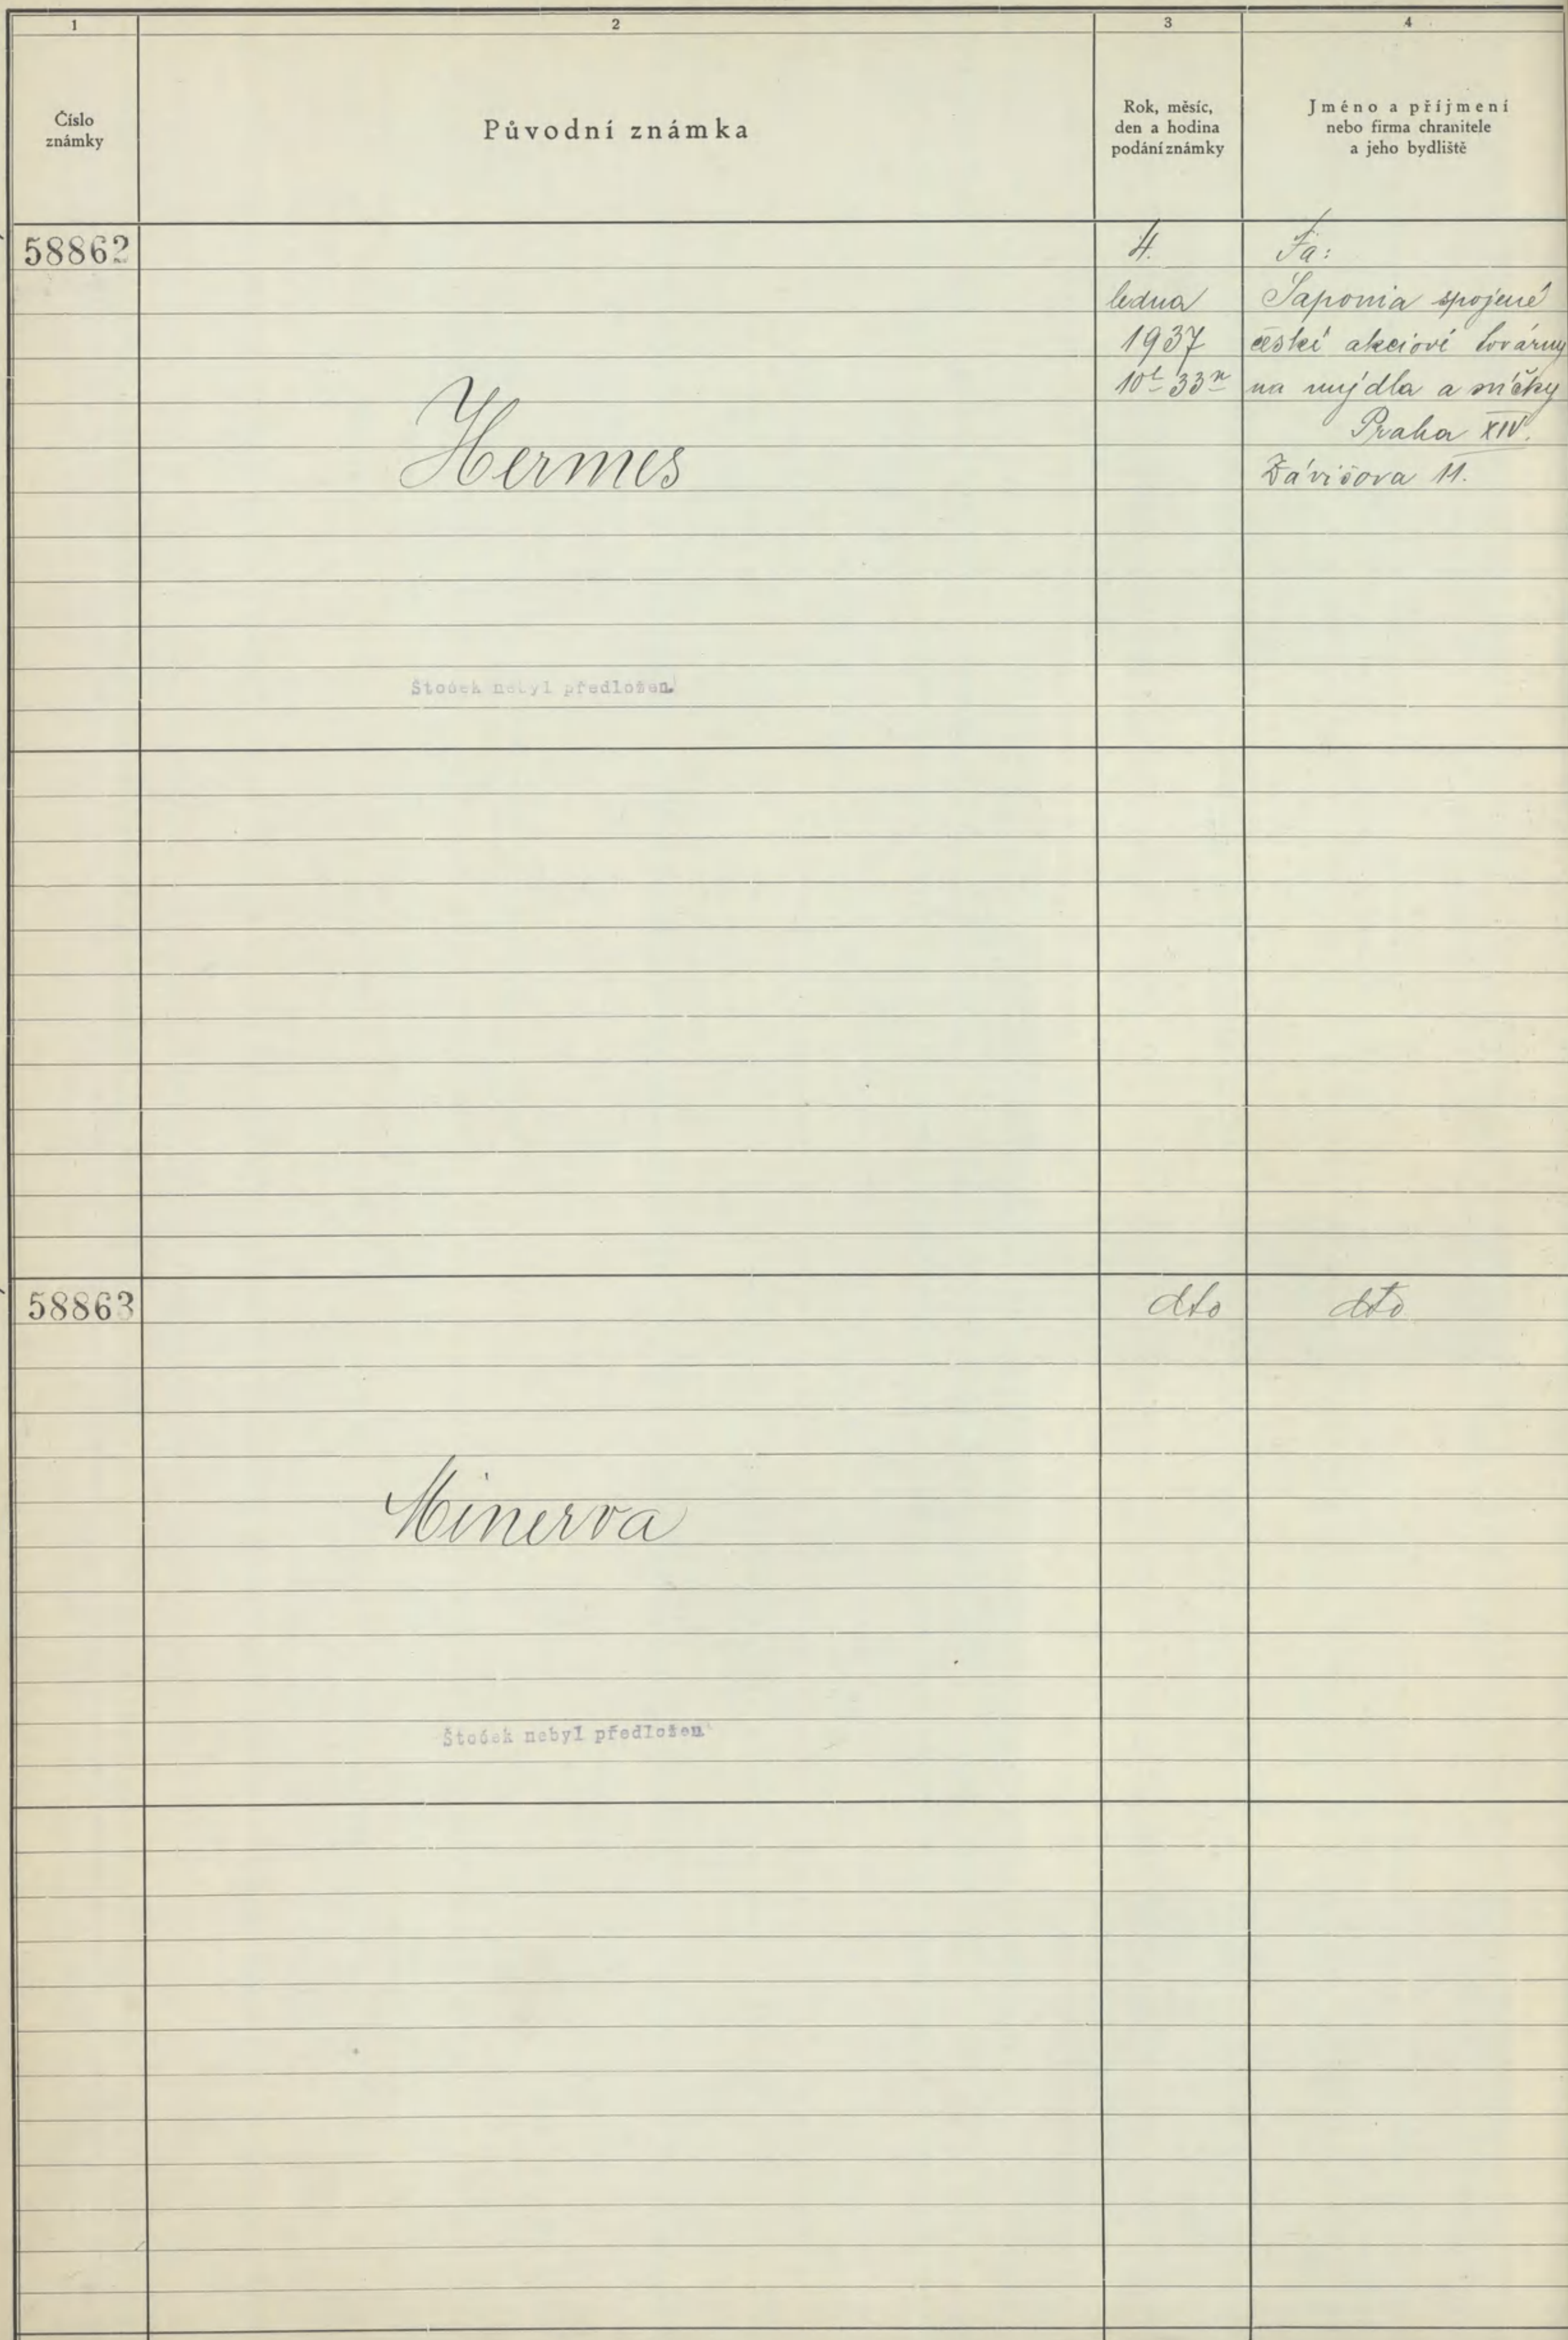 1
2
3
4
Číslo
známky
Původní známka
Rok, měsíc,
den a hodina
podání známky
Jméno a příjmení
nebo firma chranitele
a jeho bydliště
58862
Hermes
Štoček nebyl předložen.
4.
ledna
1937
10h 33m
Fa:
Saponia spojené
české akciové továrny
na mýdla a svíčky
Praha XIV.
Závišova 11.
58863
Minerva
Štoček nebyl předložen.
dto
dto